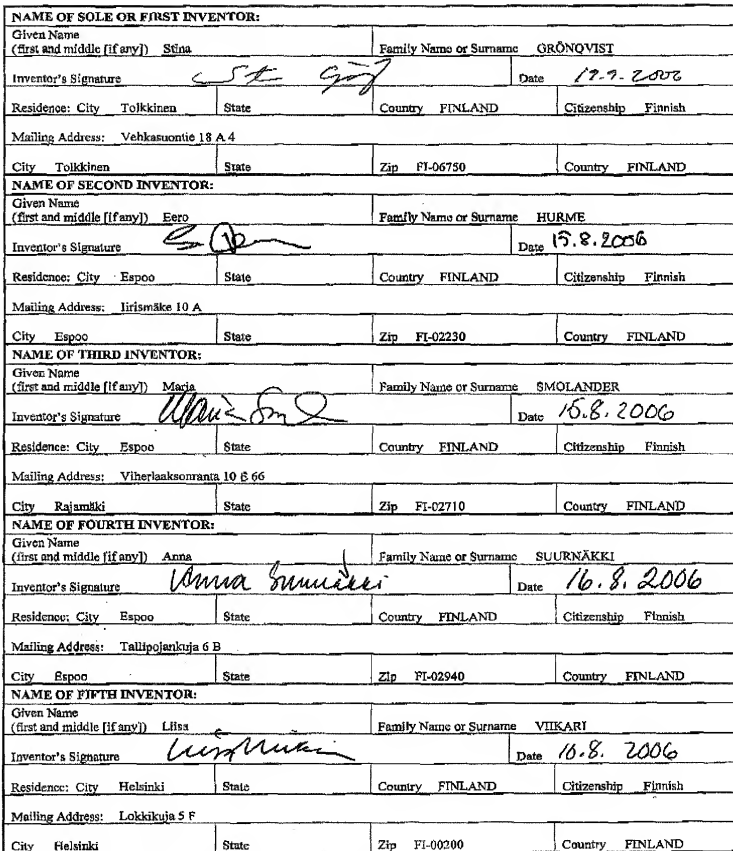 NAME OF SOLE OR FIRST INVENTOR:
Given Name
(first and middle [if any]) Stina Family Name or Surname GRÖNQVIST
Inventor's Signature Date 19-9-2006
Residence: City Tolkkinen State Country FINLAND Citizenship Finnish
Mailing Address: Vehkasuontie 18 A 4
City Tolkkinen State Zip FI-06750 Country FINLAND
NAME OF SECOND INVENTOR:
Given Name
(first and middle [if any]) Eero Family Name or Surname HURME
Inventor's Signature Date 15.8.2006
Residence: City Espoo State Country FINLAND Citizenship Finnish
Mailing Address: Iirismäke 10 A
City Espoo State Zip FI-02230 Country FINLAND
NAME OF THIRD INVENTOR:
Given Name
(first and middle [if any]) Maria Family Name or Surname SMOLANDER
Inventor's Signature Date 15.8.2006
Residence: City Espoo State Country FINLAND Citizenship Finnish
Mailing Address: Viherlaaksonranta 10 E 66
City Rajamäki State Zip FI-02710 Country FINLAND
NAME OF FOURTH INVENTOR:
Given Name
(first and middle [if any]) Anna Family Name or Surname SUURNÄKKI
Inventor's Signature Anna Suurnäkki Date 16.8.2006
Residence: City Espoo State Country FINLAND Citizenship Finnish
Mailing Address: Tallipojankuja 6 B
City Espoo State Zip FI-02940 Country FINLAND
NAME OF FIFTH INVENTOR:
Given Name
(first and middle [if any]) Liisa Family Name or Surname VIIKARI
Inventor's Signature Date 16.8. 2006
Residence: City Helsinki State Country FINLAND Citizenship Finnish
Mailing Address: Lokkikuja 5 F
City Helsinki State Zip FI-00200 Country FINLAND